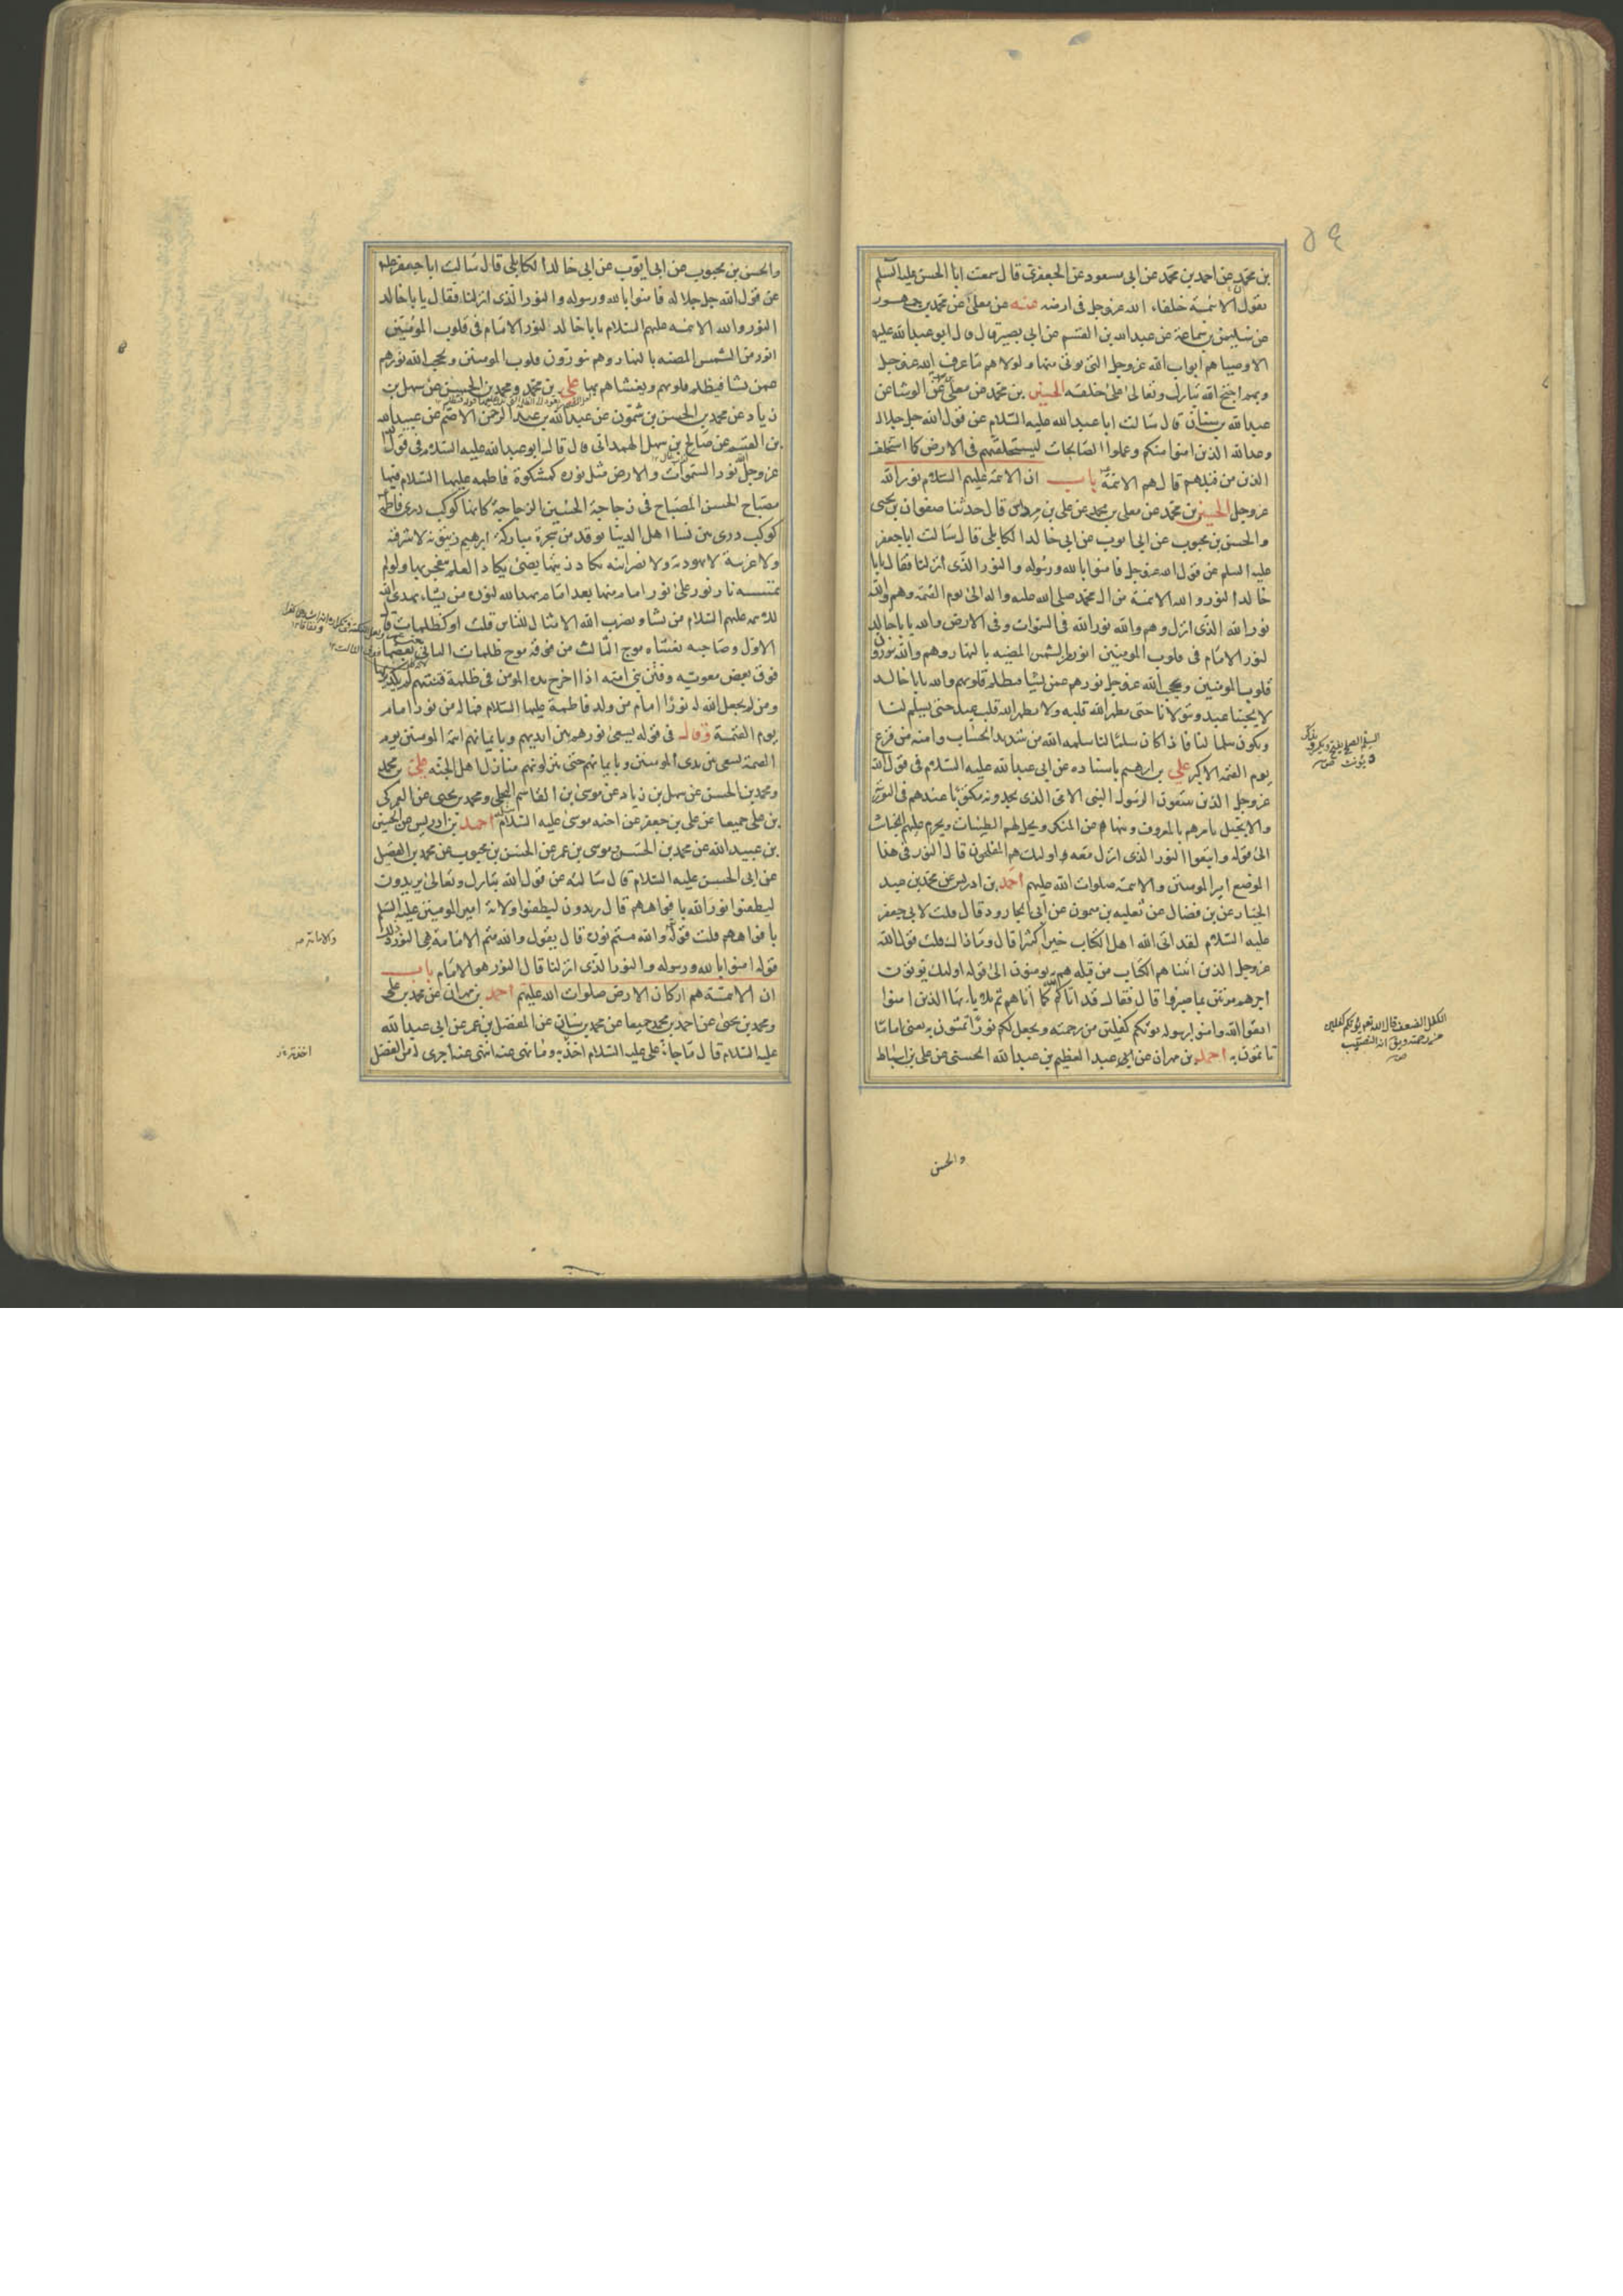 ٥٤
بن محمد عن احمد بن محمد عن ابى مسعود عن الجعفرى قال سمعت ابا الحسن عليه السلم
يقول الائمة خلفاء الله عزوجل فى ارضه عنه عن معلى عن محمد بن جمهور
عن سليمن بن سماعة عن عبدالله بن القسم عن ابى بصير قال قال ابو عبدالله عليه
الاوصيا هم ابواب الله عزوجل التى يوتى منها ولولاهم ما عرف الله عزوجل
وبهم احتج الله تبارك وتعالى على خلقه الحسين بن محمد عن معلى عن الوشا عن
عبدالله بن سنان قال سالت ابا عبدالله عليه السلام عن قول الله جل جلاله
وعد الله الذين امنوا منكم وعملوا الصالحات ليستخلفنهم فى الارض كما استخلف
الذين من قبلهم قال هم الائمة باب ان الائمة عليهم السلام نور الله
عزوجل الحسين بن محمد عن معلى بن محمد عن على بن مرداس قال حدثنا صفوان بن يحيى
والحسن بن محبوب عن ابى ايوب عن ابى خالد الكابلى قال سالت ابا جعفر
عليه السلم عن قول الله عزوجل فامنوا بالله ورسوله والنور الذى انزلنا فقال يابا
خالد النور والله الائمة من ال محمد صلى الله عليه واله الى يوم القيمة وهم والله
نور الله الذى انزل وهم والله نور الله فى السموات وفى الارض والله يابا خالد
لنور الامام فى قلوب المومنين انور من الشمس المضيه بالنهار وهم والله ينورون
قلوب المومنين ويحجب الله عزوجل نورهم عمن يشا فتظلم قلوبهم والله يابا خالد
لا يحبنا عبد ويتولانا حتى يطهر الله قلبه ولا يطهر الله قلب عبد حتى يسلم لنا
ويكون سلما لنا فاذا كان سلما لنا سلمه الله من شديد الحساب وامنه من فزع
يوم القيمه الاكبر على بن ابرهيم باسناده عن ابى عبدالله عليه السلام فى قول الله
عزوجل الذين يتبعون الرسول النبى الامى الذى يجدونه مكتوبا عندهم فى التورية
والانجيل يامرهم بالمعروف وينهاهم عن المنكر ويحل لهم الطيبات ويحرم عليهم الخبائث
الى قوله واتبعوا النور الذى انزل معه اولئك هم المفلحون قال النور فى هذا
الموضع امير المومنين والائمة صلوات الله عليهم احمد بن ادريس عن محمد بن عبد
الجبار عن بن فضال عن ثعلبه بن ميمون عن ابى الجارود قال قلت لابى جعفر
عليه السلام لقد اتى الله اهل الكتاب خيرا كثيرا قال وما ذاك قلت قول الله
عزوجل الذين اتيناهم الكتاب من قبله هم به يومنون الى قوله اولئك يوتون
اجرهم مرتين بما صبروا قال فقال قد اتاكم الله كما اتاهم ثم تلا يا ايها الذين امنوا
اتقوا الله وامنوا برسوله يوتكم كفلين من رحمته ويجعل لكم نورا تمشون به يعنى اماما
تاتمون به احمد بن مهران عن عبد العظيم بن عبدالله الحسنى عن على بن اسباط
الكفل الضعف قال الله تعم يؤتكم كفلين
من رحمته ويق انه النصيب
والحسن
والحسن بن محبوب عن ابى ايوب عن ابى خالد الكابلى قال سالت ابا جعفر عليه
عن قول الله جل جلاله فامنوا بالله ورسوله والنور الذى انزلنا فقال يا با خالد
النور والله الائمه عليهم السلام يابا خالد لنور الامام فى قلوب المؤمنين
انور من الشمس المضيه بالنهار وهم ينورون قلوب المومنين ويحجب الله نورهم
عمن يشا فيظلم قلوبهم ويغشاهم بها على بن محمد ومحمد بن الحسن عن سهل بن
زياد عن محمد بن الحسن بن شمون عن عبدالله بن عبد الرحمن الاصم عن عبدالله
بن القسم عن صالح بن سهل الهمدانى قال قال ابو عبدالله عليه السلام فى قول
عزوجل الله نور السموات والارض مثل نوره كمشكوة فاطمه عليها السلام فيها
مصباح الحسن المصباح فى زجاجة الحسين الزجاجة كانها كوكب درى فاطمة
كوكب درى بين نسا اهل الدنيا توقد من شجرة مباركة ابرهيم زيتونه لا شرقيه
ولا غربية لا يهودية ولا نصرانيه يكاد زيتها يضئ يكاد العلم ينفجر بها ولو لم
تمسسه نار نور على نور امام منها بعد امام يهد الله لنوره من يشاء يهدى الله
للائمه عليهم السلام من يشا ويضرب الله الامثال للناس قلت او كظلمات قال
الاول وصاحبه يغشاه موج الثالث من فوقه موج ظلمات الثانى بعضها
فوق بعض معوية وفتن بنى امية اذا اخرج يده المومن فى ظلمة فتنتهم لم يكد يراها
ومن لم يجعل الله له نورا امام من ولد فاطمة عليها السلام فما له من نور امام
يوم القيمة وقال فى قوله يسعى نورهم بين ايديهم وبايمانهم ائمة المومنين يوم
القيمة تسعى بين يدى المومنين وبايمانهم حتى ينزلوهم منازل اهل الجنة على بن محمد
ومحمد بن الحسن عن سهل بن زياد عن موسى بن القاسم البجلى ومحمد بن يحيى عن العمركى
بن على جميعا عن على بن جعفر عن اخيه موسى عليه السلام احمد بن ادريس عن الحسين
بن عبيد الله عن محمد بن الحسن وموسى بن عمر عن الحسن بن محبوب عن محمد بن الفضيل
عن ابى الحسن عليه السلام قال سالته عن قول الله تبارك وتعالى يريدون
ليطفئوا نور الله بافواههم قال يريدون ليطفئوا ولاية امير المومنين عليه السلم
بافواههم قلت قوله والله متم نوره قال يقول والله متم الامامة هى النور وذلك
قوله امنوا بالله ورسوله والنور الذى انزلنا قال النور هو الامام باب
ان الائمة هم اركان الارض صلوات الله عليهم احمد بن مهران عن محمد بن على
ومحمد بن يحيى عن احمد بن محمد جميعا عن محمد بن سنان عن المفضل بن عمر عن ابى عبدالله
عليه السلام قال ما جاء على عليه السلام اخذ به وما نهى عنه انتهى عنه اجرى له من الفضل